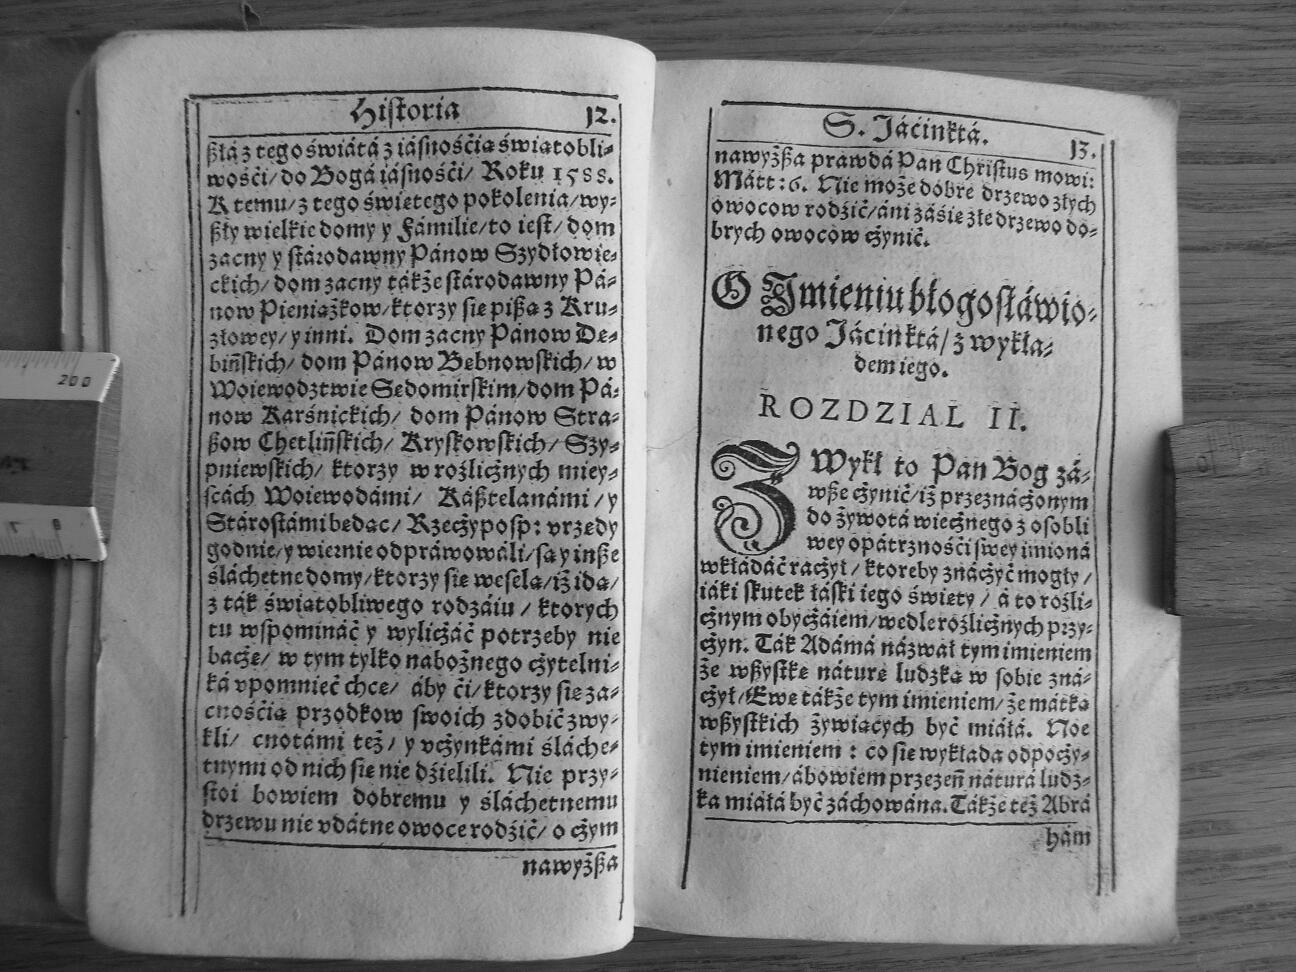 Historia 12.
ßłá z tego świátá z iásnośćią świątobli⸗
wośći/ do Bogá iásnośći/ Roku 1588.
K temu/ z tego świętego pokolenia/ wy⸗
ßły wielkie domy y Fámilie/ to iest/ dom
zacny y stárodawny Pánow Szydłowie⸗
ckich/ dom zacny tákże stárodawny Pá⸗
now Pieniążkow/ ktorzy się pißą z Kru⸗
żlowey/ y inni. Dom zacny Pánow De⸗
bińskich/ dom Pánow Bebnowskich/ w
Woiewodztwie Sędomirskim/ dom Pá⸗
now Karśnickich/ dom Pánow Stra⸗
ßow Chetlińskich/ Kryskowskich/ Szy⸗
pniewskich/ ktorzy w rozlicżnych miey⸗
scách Woiewodámi/ Káßtelanámi/ y
Stárostámi będąc/ Rzecżyposp: vrzędy
godnie/ y wiernie odpráwowáli/ są y inße
śláchetne domy/ ktorzy się wesela/ iż idą/
z ták świątobliwego rodzáiu/ ktorych
tu wspomináć y wylicżáć potrzeby nie
bacżę/ w tym tylko nabożnego cżytelni⸗
ká vpomnieć chcę/ áby ći/ ktorzy się za⸗
cnośćią przodkow swoich zdobić zwy⸗
kli/ cnotámi też/ y vcżynkámi śláche⸗
tnymi od nich się nie dźielili. Nie przy⸗
stoi bowiem dobremu y śláchetnemu
drzewu nie vdátne owoce rodźić/ o cżym
nawyżßa
S. Jáćinktá. 13.
nawyżßa prawdá Pan Christus mowi:
Mátt: 6. Nie może dobre drzewo złych
owocow rodźić/ áni záśię złe drzewo do⸗
brych owocow cżynić.
O Imieniu błogosłáwio⸗
nego Jáćinktá/ z wykłá⸗
dem iego.
ROZDZIAL II.
ZWykł to Pan Bog zá⸗
wße cżynić/ iż przeznácżonym
do żywotá wiecżnego z osobli
wey opátrznośći swey imioná
wkłádáć racżył/ ktoreby znácżyć mogły/
iáki skutek łáski iego święty/ á to rozli⸗
cżnym obycżáiem/ wedle rozlicżnych przy⸗
cżyn. Ták Adámá názwał tym imieniem
że wßystkę náturę ludzką w sobie zná⸗
cżył/ Ewę tákże tym imieniem/ że mátką
wßystkich żywiących być miáłá. Noe
tym imieniem: co się wykłada odpocży⸗
nieniem/ ábowiem przezeń náturá ludz⸗
ka miáłá być záchowána. Tákże też Abrá
hám